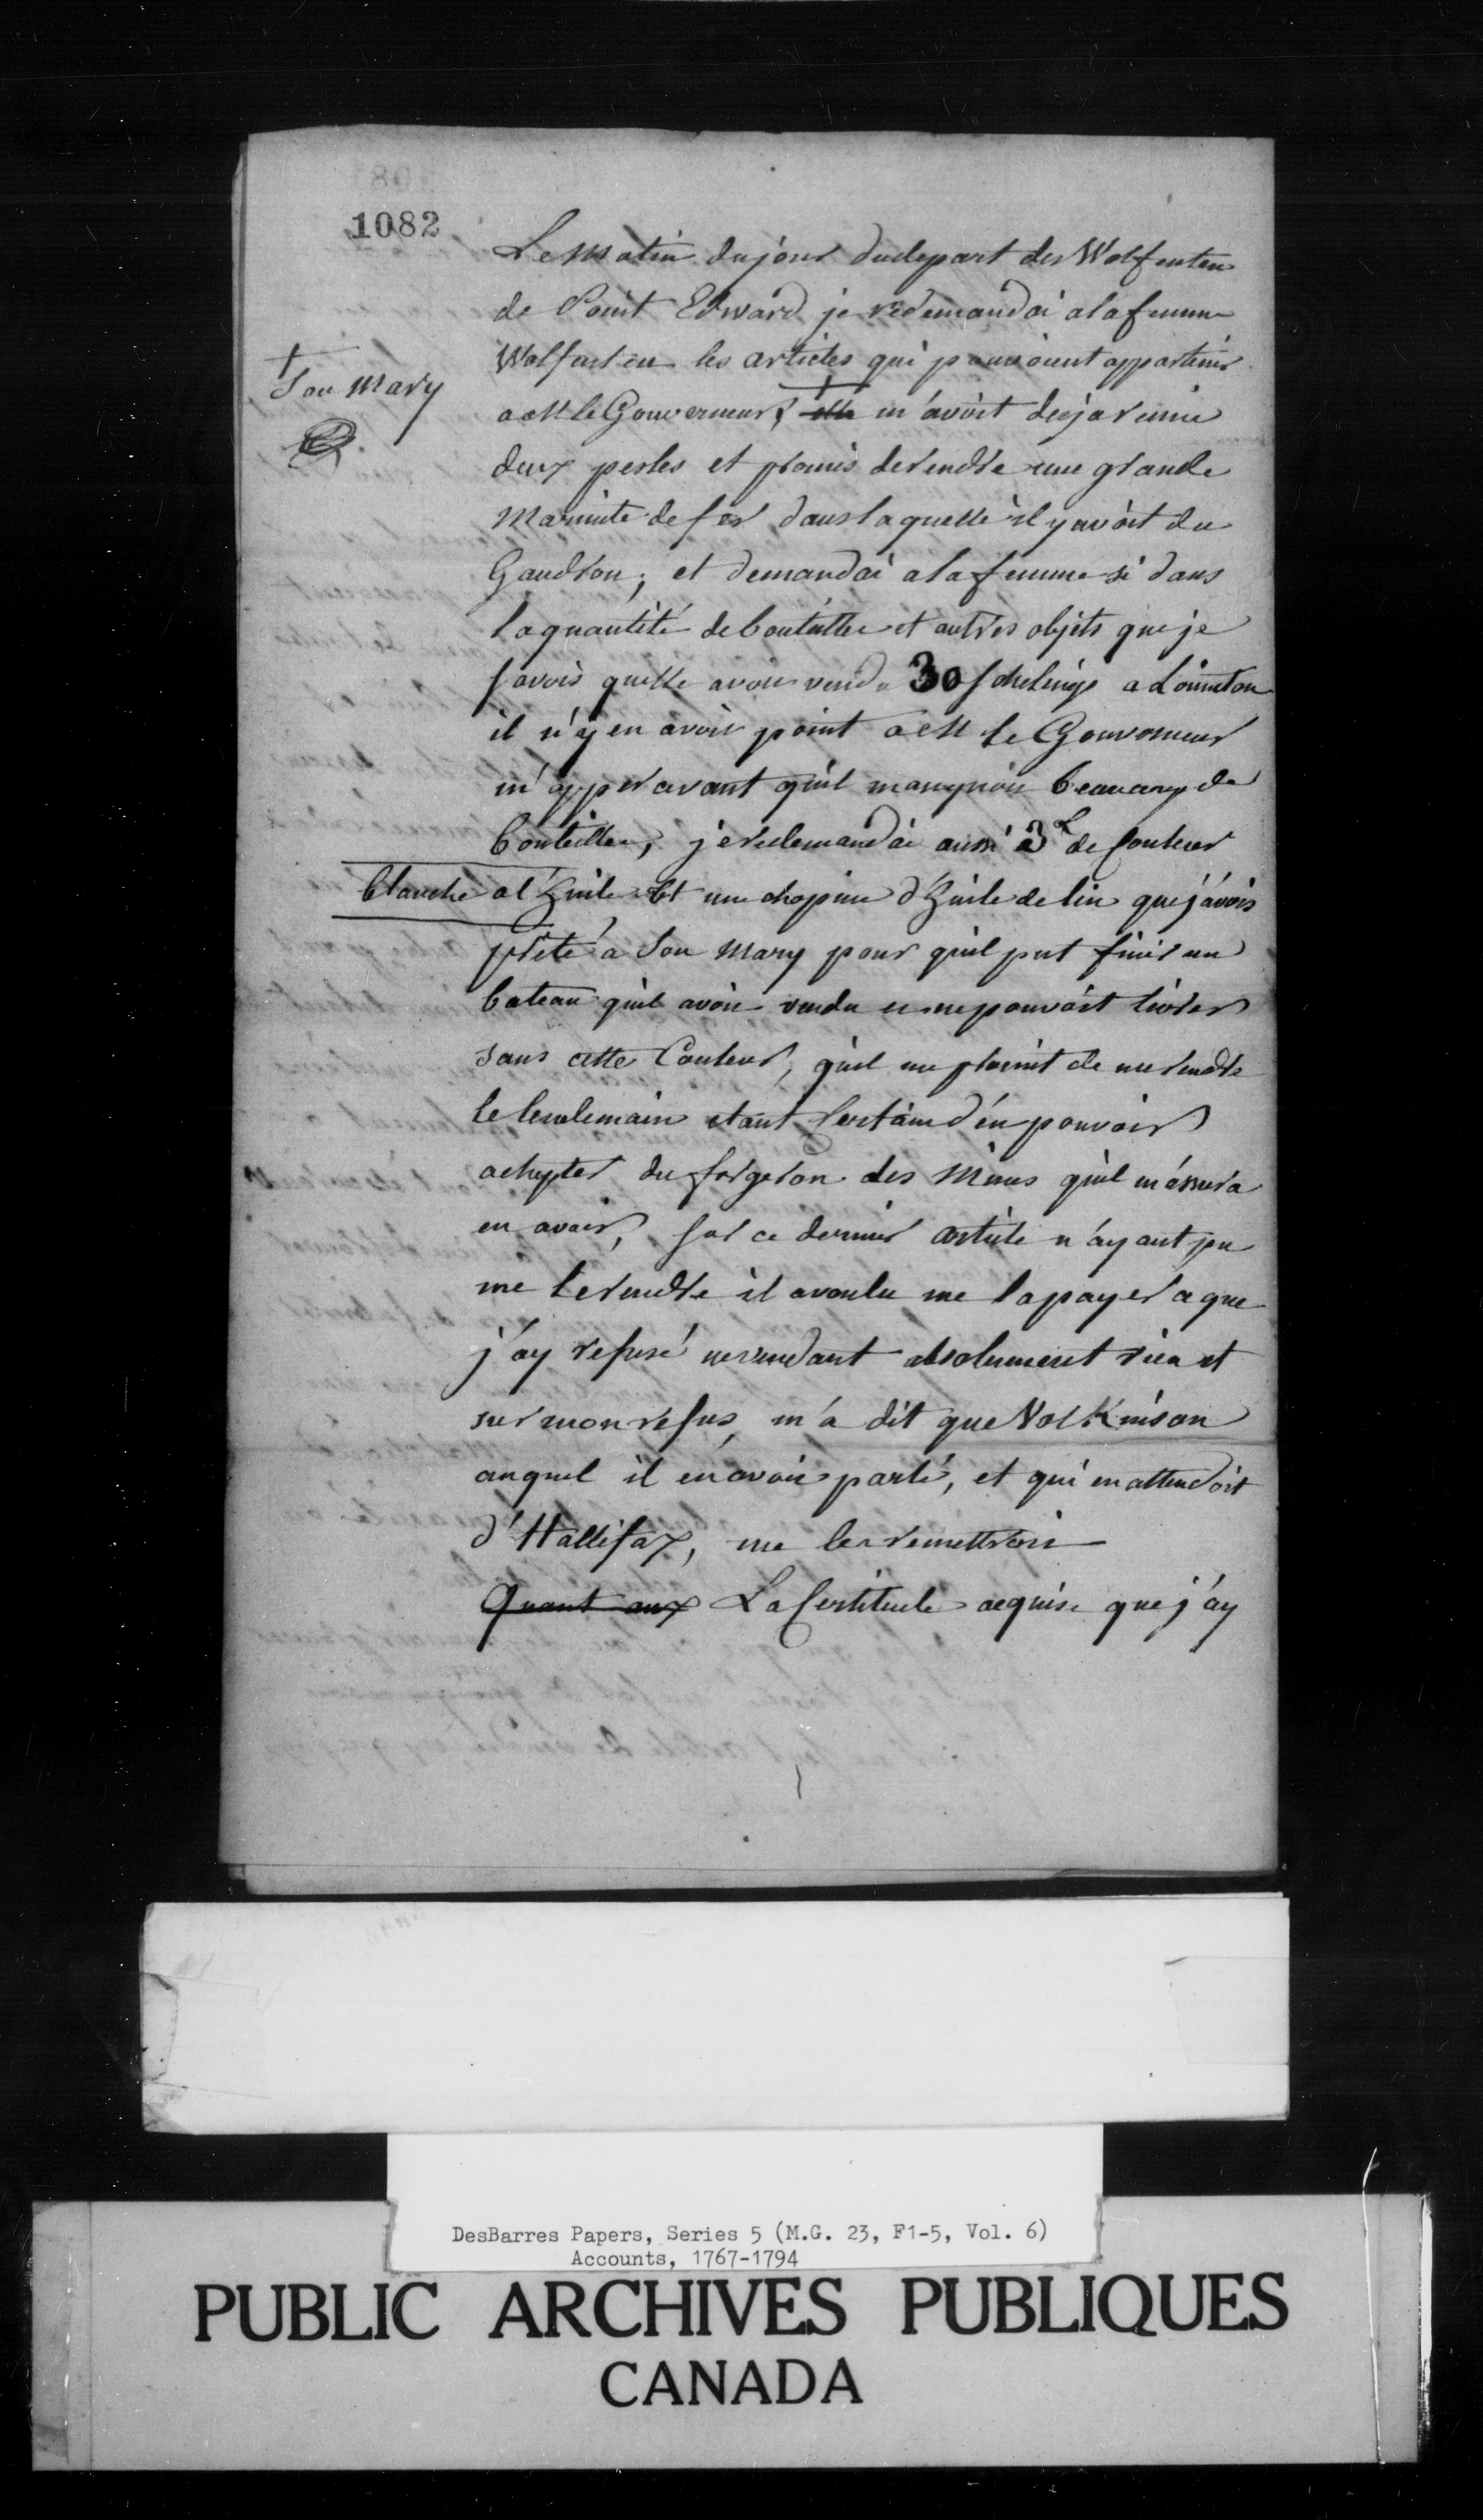 1082
Le Matin du jour du depart des Wolfenten
de Point Edward je redemandai a la femme
Wolfenten les articles qui pouvoient appartenir
† Son Mary
a M le Gouverneur, † elle m'avoit dejaremis
deux perles et promis de rendre une grande
Marmite de fer dans laquelle il y avoit du
Gaudron; et demandai a la femme si dans
la quantité de bouteilles et autres objets que je
savois quelle avoir vendu 30 schelings a
il n'y en avoir point a M le Gouverneur
m'appercevant quil manquoir beaucoup de
bouteilles, je redemandai aussi 3 L de Couleur
blanche a l'huile et une chopine d'huile de lin que j'avois
prêté a Son Mary pour quil put finir un
bateau quil avoir vendu et ne pouvoit livrer
sans cette Couleur, quil me promit de me rendre
le lendemain etant Certain d'en pouvoir
achepter du forgeron des Mines quil m'assura
en avoir, sur ce dernier article n'ayant pu
me le rendre il a voulu me la payer a que
j'ay refusé ne vendant absolument rien et
sur mon refus, m'a dit que Volkinson
auquel il en avoir parlé, et qui en attendoit
d'Hallifax, me les remettroir
Quant aux La Certitude acquise que j'ay
DesBarres Papers, Series 5 (M.G. 23, F1-5, Vol. 6)
Accounts, 1767-1794
PUBLIC ARCHIVES PUBLIQUES
CANADA